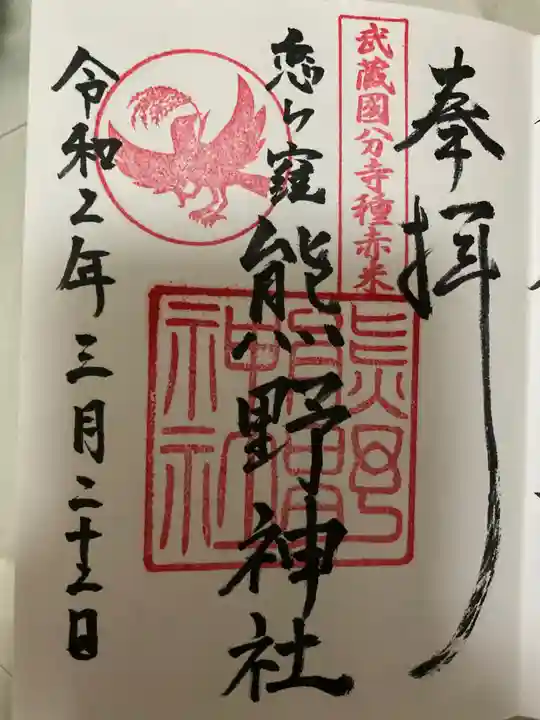 奉拝
武蔵國分寺種赤米
恋ヶ窪
熊野神社
熊野
神社
令和2年三月二十五日